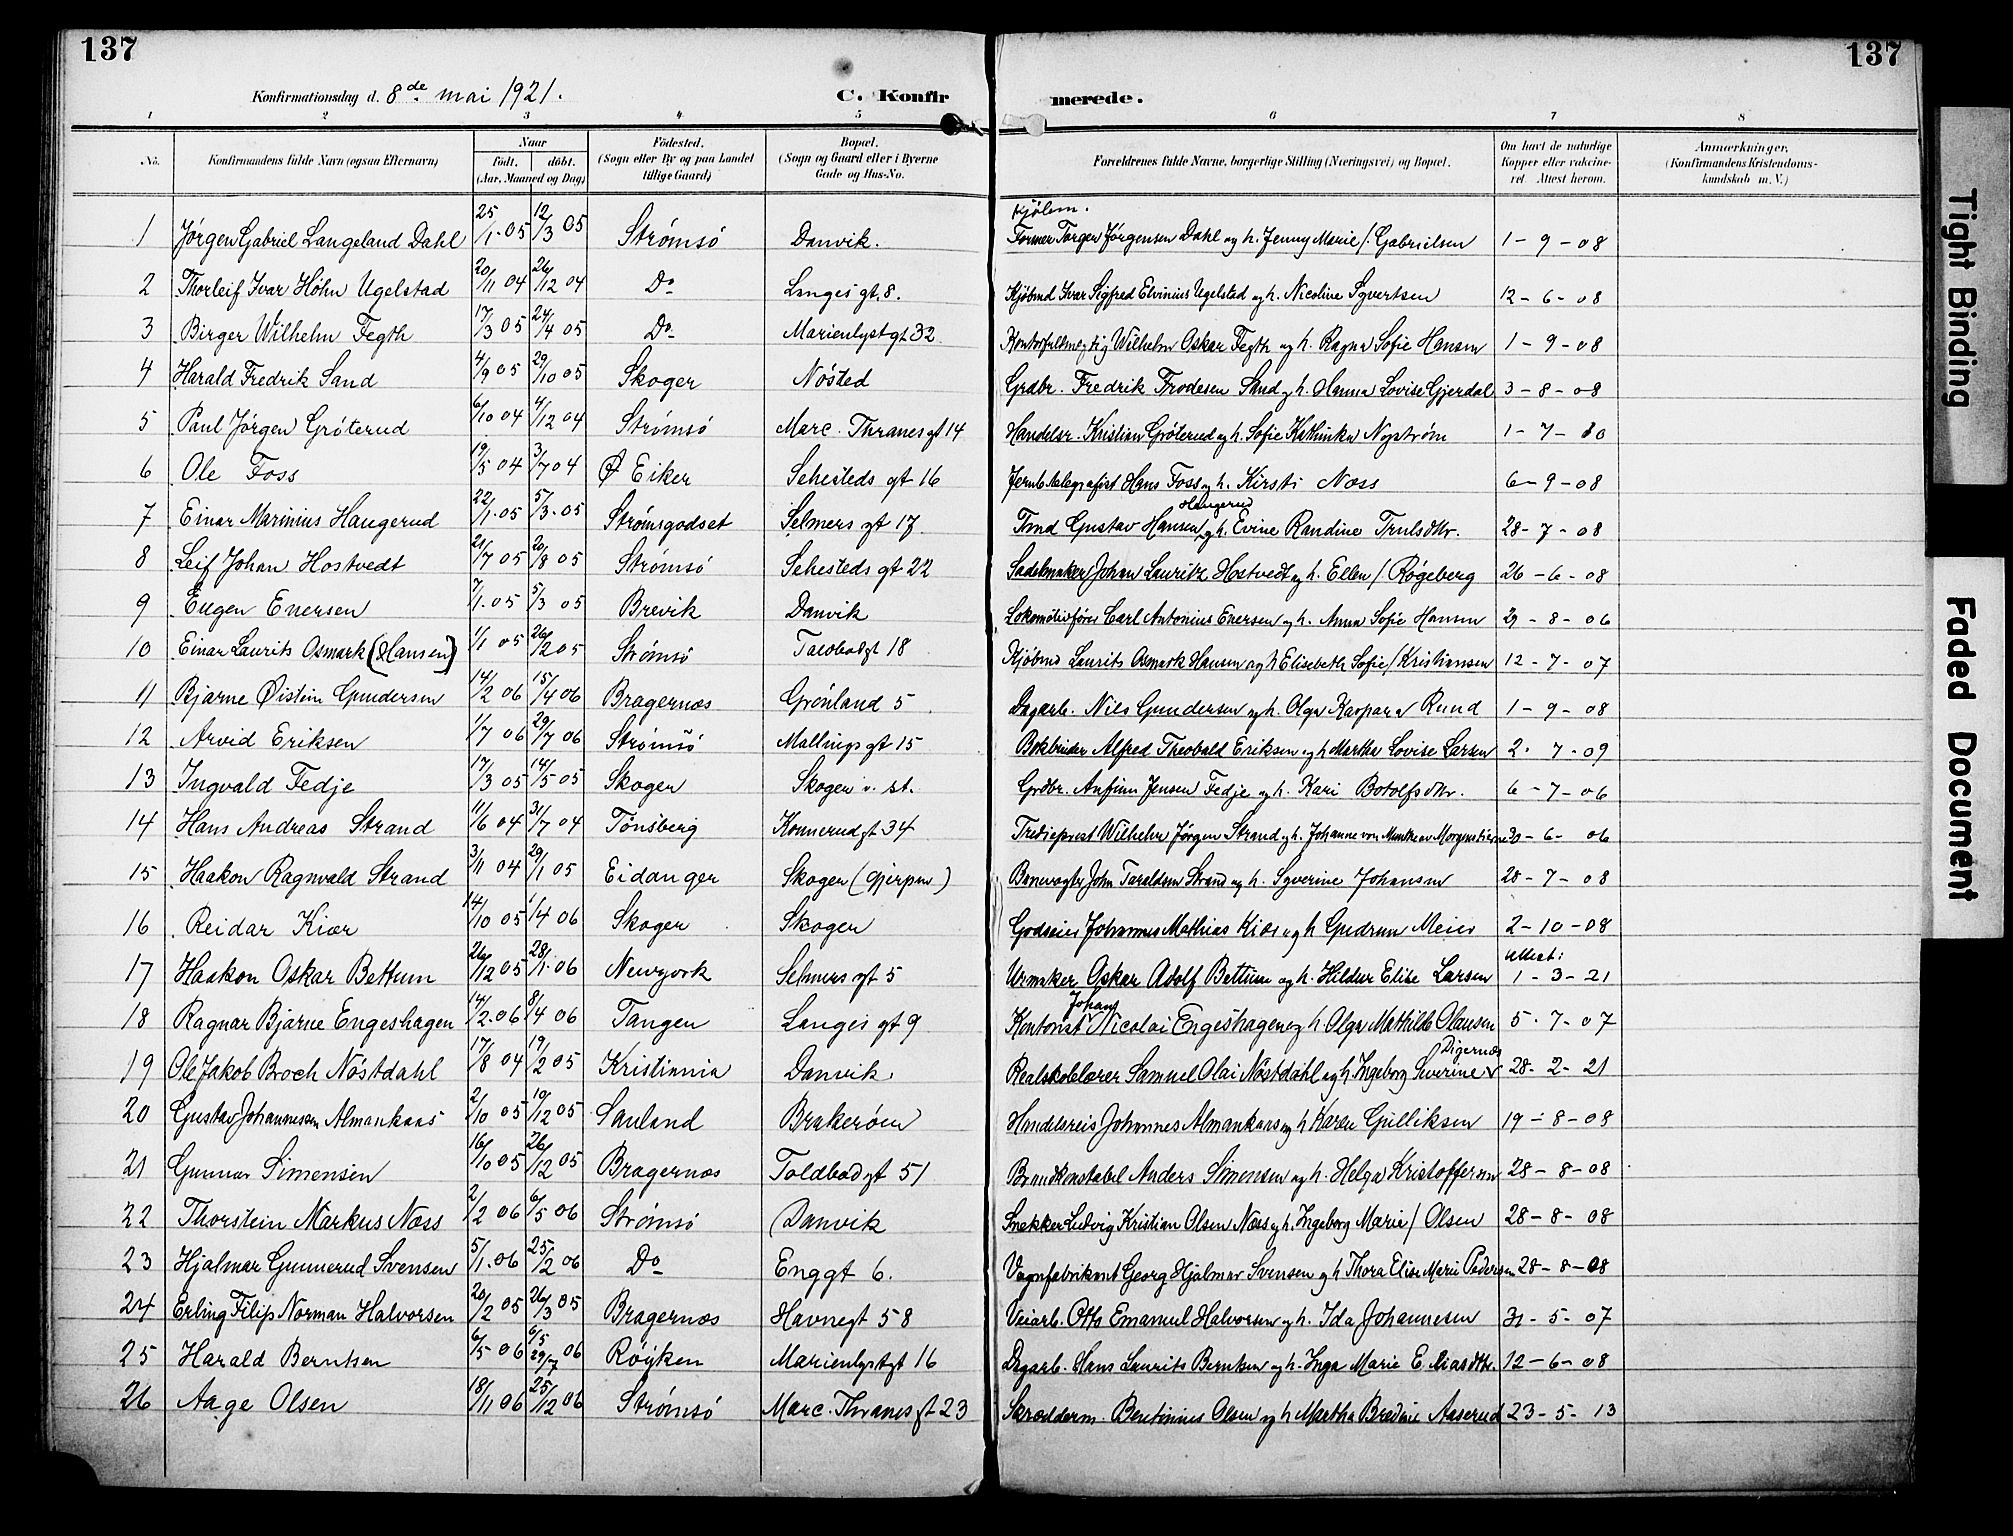 137
137
Konfirmationsdag d. 8de mai 1921.
C. Konfir
merede.
1 2 3 4 5 6 7 8
No.
Konfirmandens fulde Navn (ogsaa Efternavn)
Naar
født. døbt.
(Aar, Maaned og Dag)
Fødested.
(Sogn eller By og paa Landet
tillige Gaard)
Bopæl.
(Sogn og Gaard eller i Byerne
Gade og Hus-No.
Forældrenes fulde Navne, borgerlige Stilling (Næringsvei) og Bopæl.
Om havt de naturlige
Kopper eller vakcine-
ret. Attest herom.
Anmærkninger.
(Konfirmandens Kristendoms-
kundskab m. V.)
1 Jørgen Gabriel Langeland Dahl 25/1. 05 12/3 05 Strømsø Danvik. Former Torger Jørgensen Dahl og h. Jenny Marie f. Gabrielsen 1 - 9 - 08
2 Thorleif Ivar Høhn Ugelstad 20/11 04 26/12 04 Do Langes gt. 8. Kjøbmd Ivar Sigfred Elvinius Ugelstad og h. Nicoline Syvertsen 12 - 6 - 08
3 Birger Wilhelm Fegth 17/3 05 24/4 05 Do Marienlyst gt 32 Kontorfuldmegtig Wilhelm Oskar Fegth og h. Ragna Sofie Hansen 1 - 9 - 08
4 Harald Fredrik Sand 4/9 05 29/10 05 Skoger Nøsted Grdbr. Fredrik Frodesen Sand og h. Hanna Lovise Gjerdal 3 - 8 - 08
5 Paul Jørgen Grøterud 6/10 04 4/12 04 Strømsø Marc. Thranes gt 14 Handelsr. Kristian Grøterud og h. Sofie Kathinka Nystrøm 1 - 7 - 10
6 Ole Foss 19/5 04 3/7 04 Ø Eiker Sehesteds gt 16 Jernb.telegrafist Hans Foss og h. Kirsti Næss 6 - 9 - 08
7 Einar Marinius Haugerud 22/1. 05 5/3. 05 Strømsgodset Selmers gt 17. Tmd Gustav Hansen Haugerud og h. Evine Randine Trulsdtr. 28 - 7 - 08
8 Leif Johan Hostvedt 21/7 05 20/8 05 Strømsø Sehesteds gt 22 Sadelmaker Johan Lauritz Hostvedt og h. Ellen f. Røgeberg 26 - 6 - 08
9 Eugen Enersen 7/1. 05 5/3 05 Brevik Danvik Lokomotivfører Carl Antonius Enersen og h. Anna Sofie Hansen 29 - 8 - 06
10 Einar Laurits Osmark (Hansen) 1/1 05 26/2 05 Strømsø Toldbodgt 18 Kjøbmd Laurits Osmark Hansen og h Elisabeth Sofie f. Kristiansen 12 - 7 - 07
11 Bjarne Øistein Gundersen 14/2 06 15/4 06 Bragernæs Grønland 5 Dagarb. Nils Gundersen og h. Olga Kaspara Rund 1 - 9 - 08
12 Arvid Eriksen 1/7 06 29/7 06 Strømsø Mallings gt 15 Bokbinder Alfred Theobald Eriksen og h Martha Lovise Larsen 2. 7 - 09
13 Ingvald Fedje 17/3 05 14/5 05 Skoger Skoger v. st. Grdbr. Anfinn Jensen Fedje og h. Kari Botolfsdtr. 6 - 7 - 06
14 Hans Andreas Strand 11/6 04 31/7 04 Tønsberg Konnerud gt 34 Trediepræst Wilhelm Jørgen Strand og h. Johanne von Munthe av Morgenstierne 30 - 6 - 06
15 Haakon Ragnvald Strand 3/11 04 29/1 05 Eidanger Skoger (Gjerpen) Banevogter John Taraldsen Strand og h. Syverine Johansen 28 - 7 - 08
16 Reidar Kiær 14/10 05 1/4 06 Skoger Skoger Godseier Johannes Mathias Kiær og h Gudrun Meier 2 - 10 - 08
17 Haakon Oskar Bettum 26/12 05 28/1. 06 Newyork Selmers gt 5 Urmaker Oskar Adolf Bettum og h. Hildur Elise Larsen Attest: 1 - 3 - 21
18 Ragnar Bjarne Engeshagen 14/2. 06 8/4 06 Tangen Langes gt 9 Kontorist Johan Nicolai Engeshagen og h Olga Mathilde Olausen 5. 7 - 07
19 Ole Jakob Broch Nøstdahl 17/8 04 19/2 05 Kristiania Danvik. Realskolelærer Samuel Olai Nøstdahl og h Ingeborg Severine Digernæs 28 - 2 - 21
20 Gustav Johannessen Almankaas 2/10 05 10/12 05 Sauland Brakerøen Handelsreis Johannes Almankaas og h Karen Gulliksen 19 - 8 - 08
21 Gunnar Simensen 16/10 05 26/12 05 Bragernæs Toldbodgt 51 Brandkonstabel Anders Simensen og h. Helga Kristoffersen 28 - 8 - 08
22 Thorstein Markus Næss 2/2 06 6/5 06 Strømsø Danvik Snekker Ludvig Kristian Olsen Næss og h. Ingeborg Marie f. Olsen 28 - 8 - 08
23 Hjalmar Gunnerud Svensen 5/1. 06 25/2 06 Do Enggt 6. Vognfabrikant Georg Hjalmar Svensen og h Thora Elise Marie Pedersen 28 - 8 - 08
24 Erling Filip Norman Halvorsen 20/2 05 26/3 05 Bragernæs Havnegt 58 Veiarb. Otto Emanuel Halvorsen og h. Ida Johannesen 31 - 5 - 07
25 Harald Berntsen 6/5 06 6/5 29/7 06 Røyken Marienlystgt 16 Dagarb. Hans Laurits Berntsen og h. Inga Marie E. Eliasdtr. 12 - 6 - 08
26 Aage Olsen 18/11 06 25/12 06 Strømsø Marc. Thranes gt 23 Skrædderm. Bentinius Olsen og h Martha Bredine Aaserud 23 - 5 - 13
Tight Binding
Faded Document